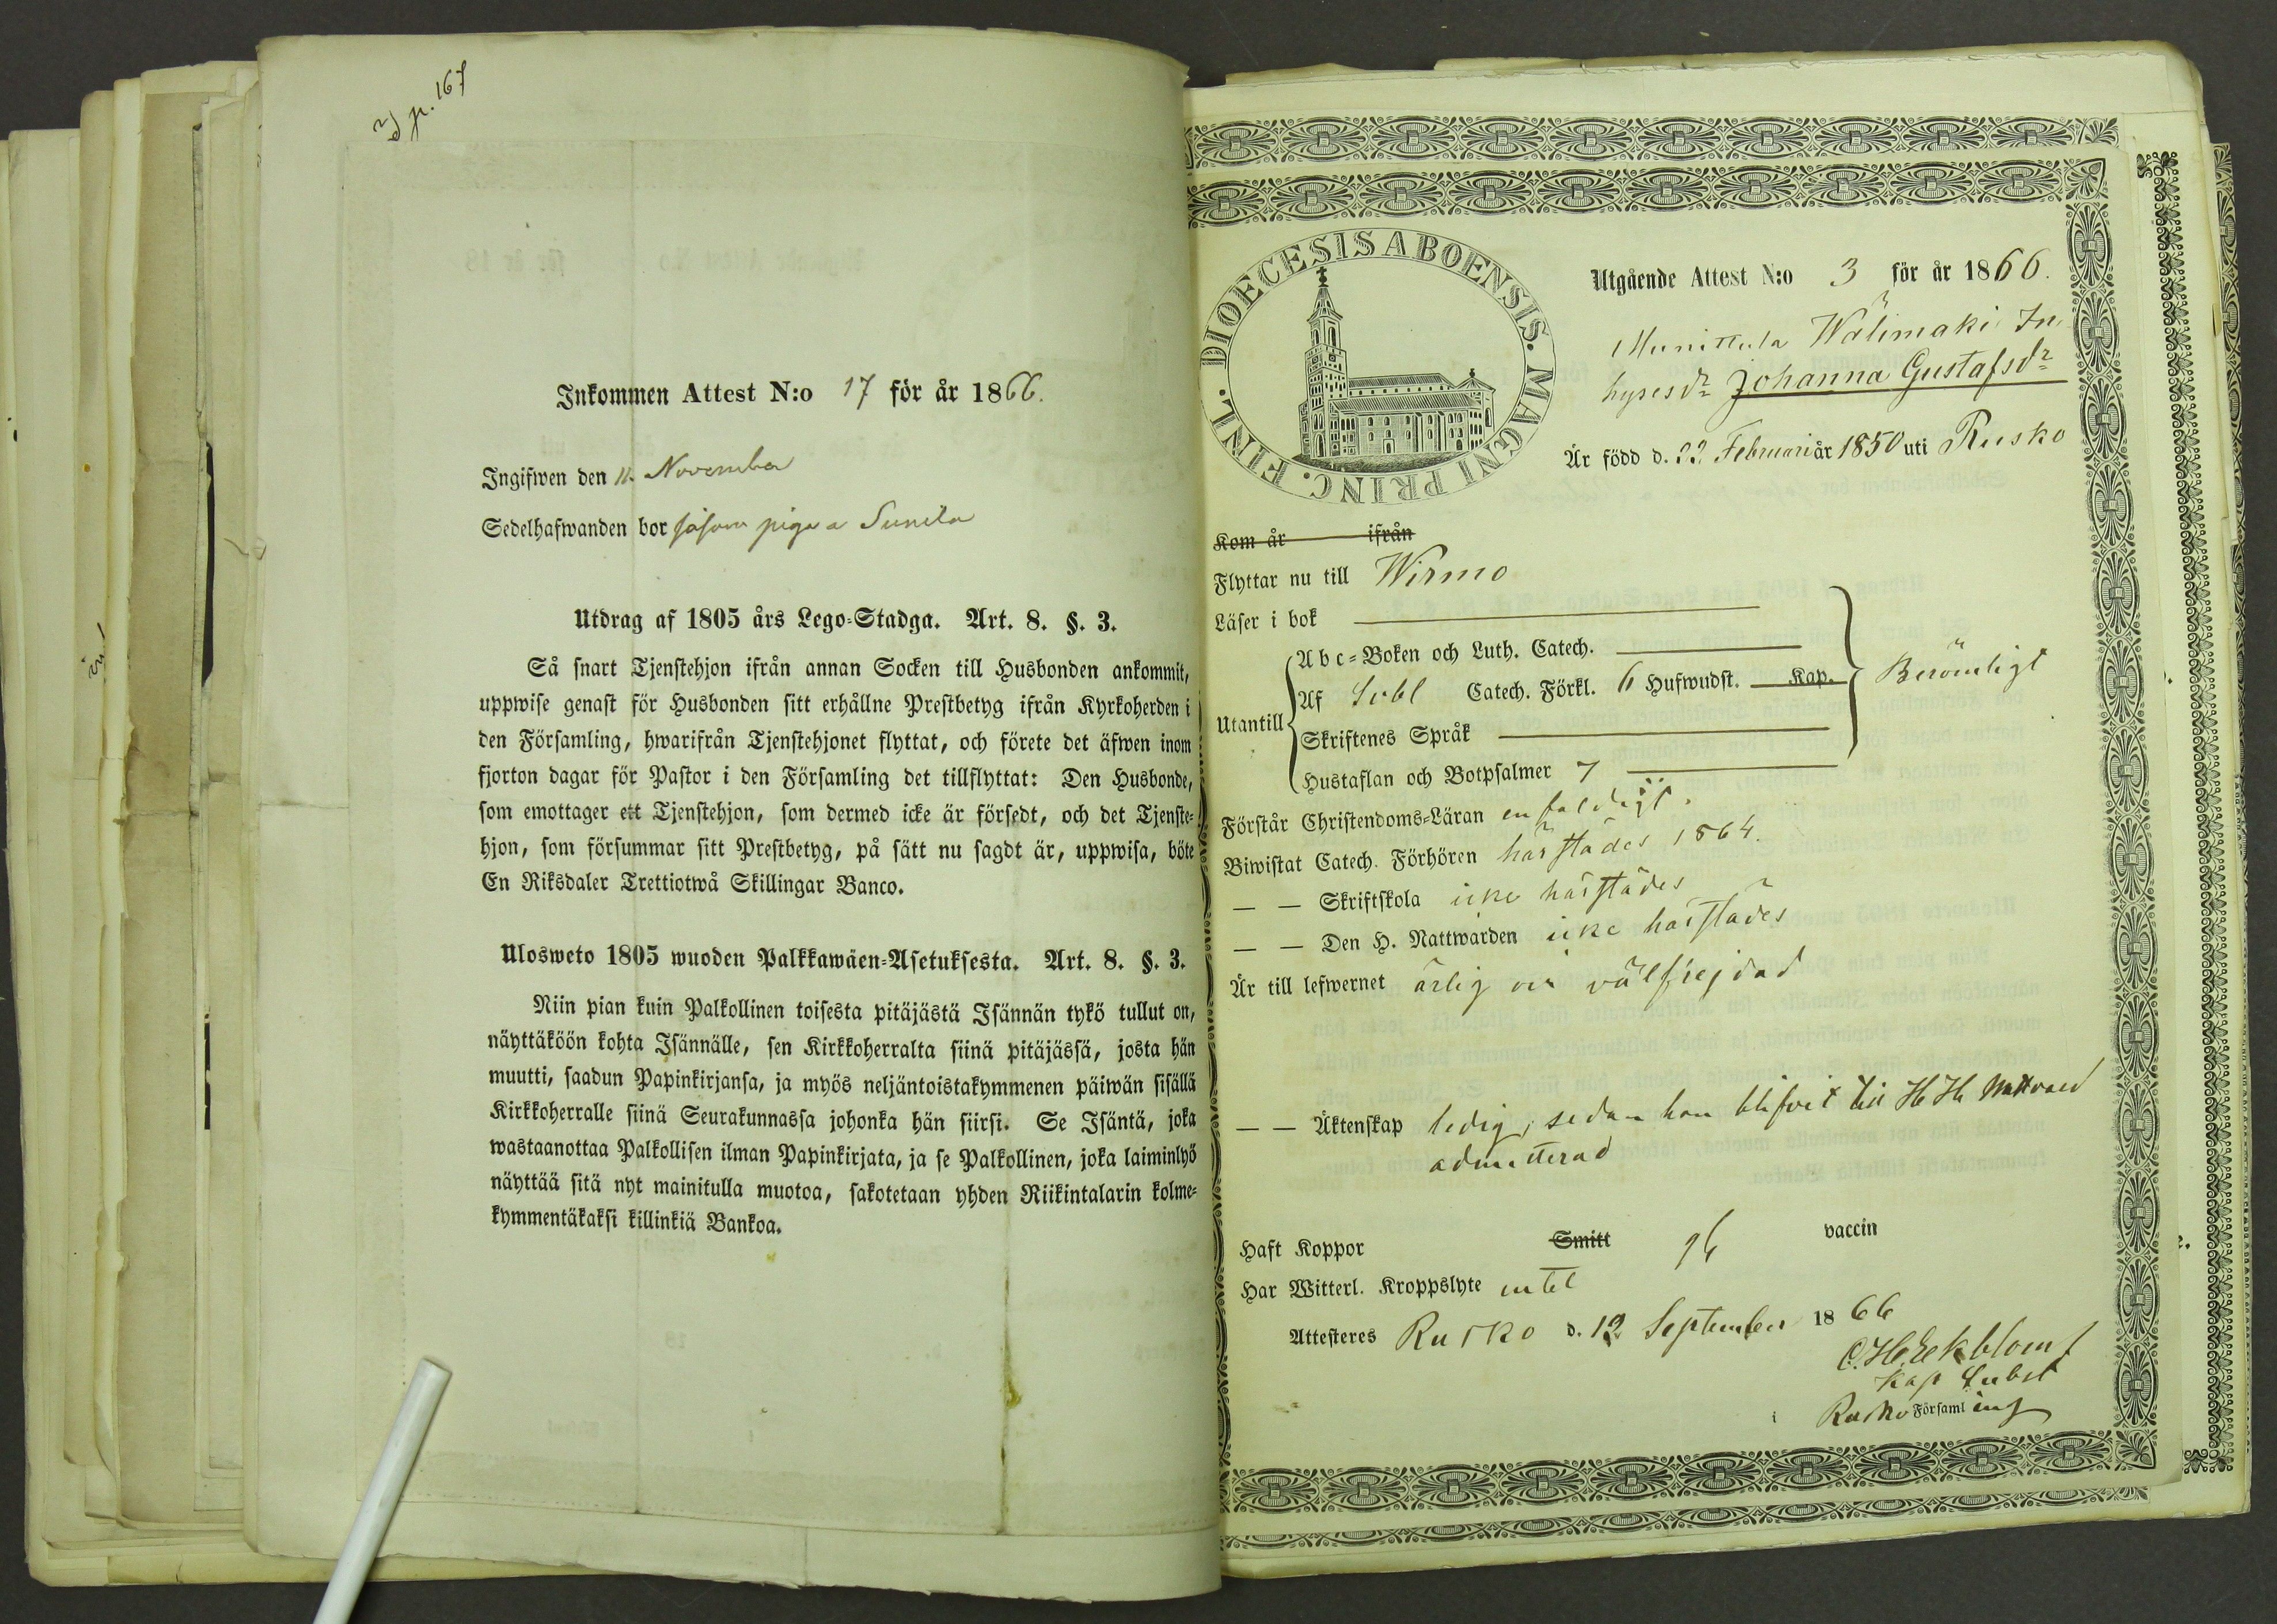 p. 167
Inkommen Attest N:o 17 för år 1866.
Ingifwen den 11. November
Sedelhafwanden bor såsom piga a Sunila
Utdrag af 1805 års Lego-Stadga. Art. 8. §. 3.
Så snart Tjenstehjon ifrån annan Socken till Husbonden ankommit,
uppwise genast för Husbonden sitt erhållne Prestbetyg ifrån Kyrkoherden i
den Församling, hwarifrån Tjenstehjonet flyttat, och förete det äfwen inom
fjorton dagar för Pastor i den Församling det tillflyttat: Den Husbonde,
som emottager ett Tjenstehjon, som dermed icke är försedt, och det Tjenste-
hjon, som försummar sitt Prestbetyg, på sätt nu sagdt är, uppwisa, böte
En Riksdaler Trettiotwå Skillingar Banco.
Ulosweto 1805 wuoden Palkkawäen-Asetuksesta. Art. 8. §. 3.
Niin pian kuin Palkollinen toisesta pitäjästä Isännän tykö tullut on,
näyttäköön kohta Isännälle, sen Kirkkoherralta siinä pitäjässä, josta hän
muutti, saadun Papinkirjansa, ja myös neljäntoistakymmenen päiwän sisällä
Kirkkoherralle siinä Seurakunnassa johonka hän siirsi. Se Isäntä, joka
wastaanottaa Palkollisen ilman Papinkirjata, ja se Palkollinen, joka laiminlyö
näyttää sitä nyt mainitulla muotoa, sakotetaan yhden Riikintalarin kolme-
kymmentäkaksi killinkiä Bankoa.
FINL. DIOECESIS ABOENSIS. MAGNI PRINC.
Utgående Attest N:o 3 för år 1866.
Munittula Wälimäki In
hyresdr Johanna Gustafsdr
Är född d. 22 Februari år 1850 uti Rusko
Kom år ifrån
Flyttar nu till Wirmo
Läser i bok
Utantill
Abc-Boken och Luth. Catech.
Af Svbl Catech. Förkl. 6 Hufwudst. Kap.
Skriftenes Språk
Hustaflan och Botpsalmer 7
Berömligt
Förstår Christendoms-Läran enfaldigt.
Biwistat Catech. Förhören härstädes 1864.
— — Skriftskola icke härstädes
— — Den H. Nattwarden icke härstädes
Är till lefwernet ärlig och välfrejdad
— — Äktenskap ledig, sedan hon blifvit till H H Nattvard
admitterad
Haft Koppor Smitt vaccin
Har Witterl. Kroppslyte intet
Attesteres Rusko d. 12 September 1866
C. H. Ekblom
Kap Subst
i Rusko Församling